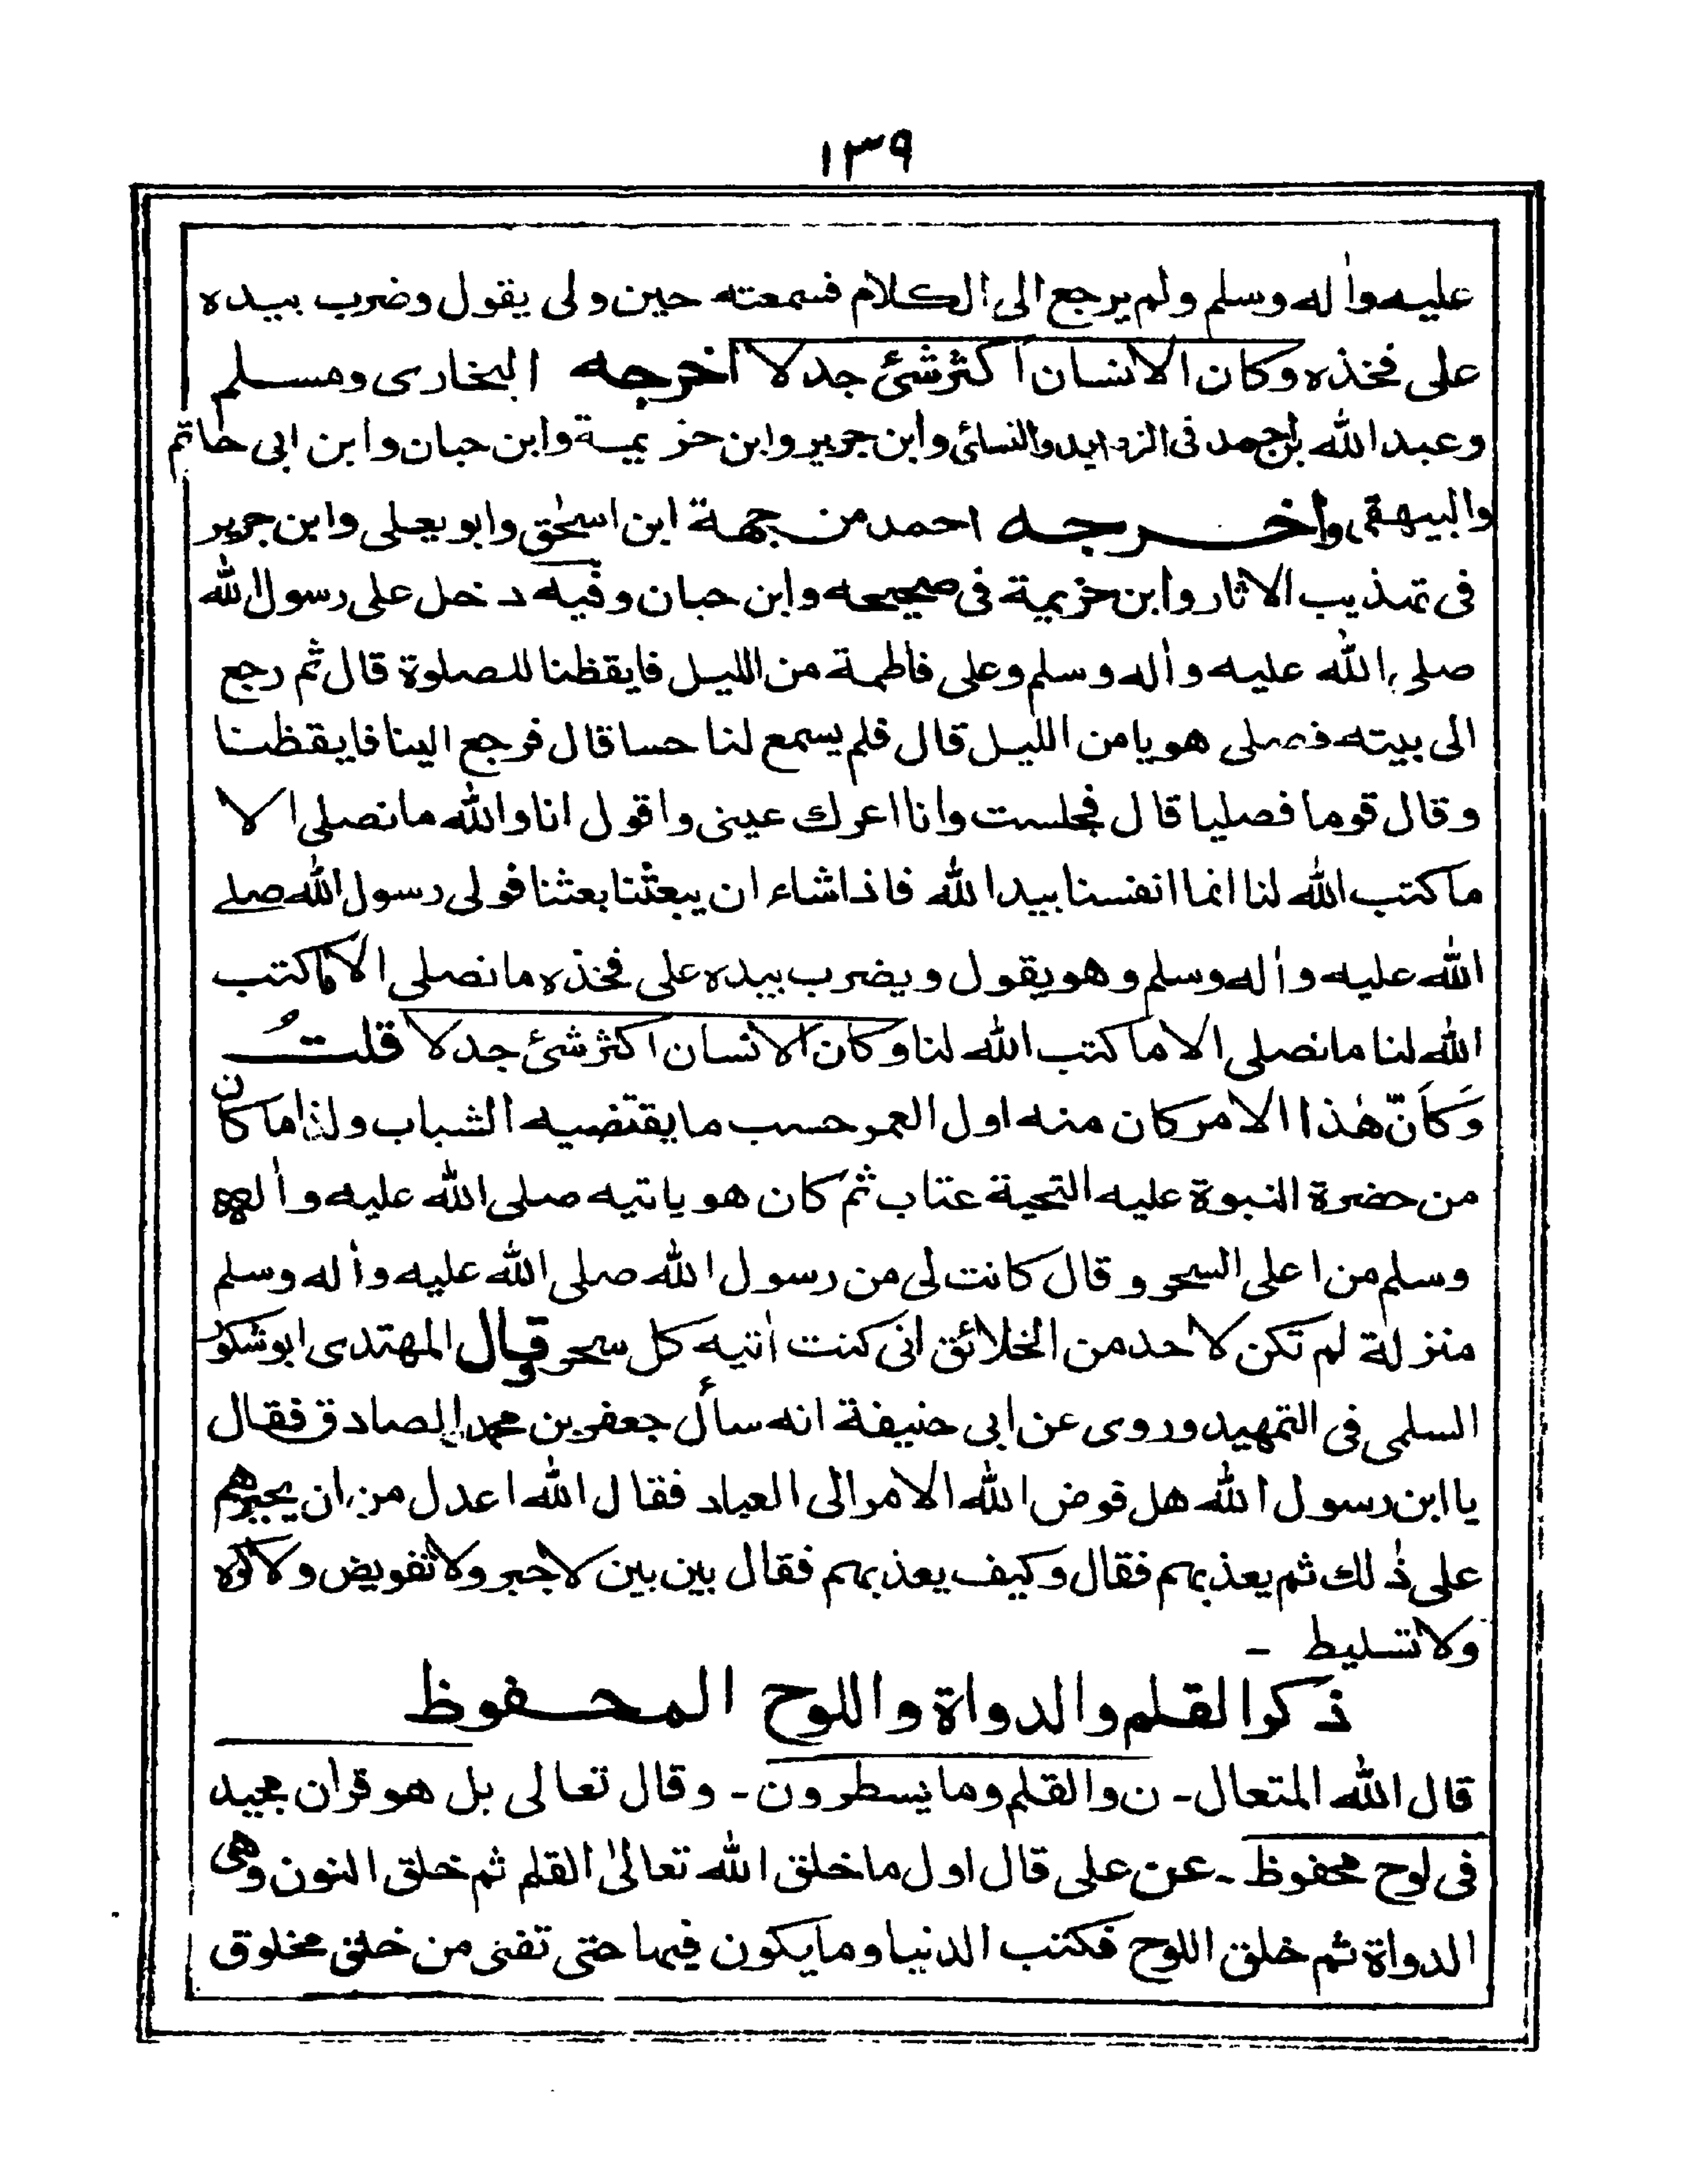 ١٣٩
عليه واٰله وسلم ولم يرجع الى الكلام فسمعته حين ولى يقول وضرب بيده
على فخذه وكان الانسان اكثر شئ جدلا اخرجه البخارى ومسلم
وعبد الله بن احمد فى الزوايد والنسائى وابن جرير وابن خزيمة وابن حبان وابن ابى حاتم
والبيهقى واخرجه احمد من جهة ابن اسحٰق وابو يعلى وابن جرير
فى تهذيب الاثار وابن خزيمة فى صحيحه وابن حبان وفيه دخل على رسول الله
صلى الله عليه واٰله وسلم وعلى فاطمة من الليل فايقظنا للصلوة قال ثم رجع
الى بيته فصلى هويا من الليل قال فلم يسمع لنا حسا قال فرجع الينا فايقظنا
وقال قوما فصليا قال فجلست وانا اعرك عينى واقول انا والله ما نصلى الا
ما كتب الله لنا انما انفسنا بيد الله فاذا شاء ان يبعثنا بعثنا فولى رسول الله صلے
الله عليه واٰله وسلم وهو يقول ويضرب بيده على فخذه ما نصلى الا ما كتب
الله لنا ما نصلى الا ما كتب الله لنا وكان الانسان اكثر شئ جدلا قلتُ
وَكَاَنّ هٰذا الامر كان منه اول العمر حسب ما يقتضيه الشباب ولذا ما كان
من حضرة النبوة عليه التحية عتاب ثم كان هو ياتيه صلى الله عليه واٰله
وسلم من اعلى السحر وقال كانت لى من رسول الله صلى الله عليه واٰله وسلم
منزلة لم تكن لاحد من الخلائق انى كنت اٰتيه كل سحر وقال المهتدى ابو شكور
السلمى فى التمهيد وروى عن ابى حنيفة انه سأل جعفر بن محمد الصادق فقال
يا ابن رسول الله هل فوض الله الامر الى العباد فقال الله اعدل من ان يجبرهم
على ذٰلك ثم يعذبهم فقال وكيف يعذبهم فقال بين بين لا جبر ولا تفويض ولا كره
ولا تسليط -
ذكر القلم والدواة واللوح المحفوظ
قال الله المتعال - ن والقلم وما يسطرون - وقال تعالى بل هو قران مجيد
فى لوح محفوظ - عن على قال اول ما خلق الله تعالىٰ القلم ثم خلق النون وهى
الدواة ثم خلق اللوح فكتب الدنيا وما يكون فيها حتى تفنى من خلق مخلوق